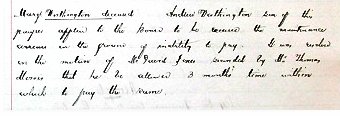 Mary Worthington deceased Andrew Worthington son of this
pauper applied to the Board to be excused the maintenance
on the ground of inability to pay. It was resolved
on the motion of Mr David Jones seconded by Mr Thomas
Morris that he be allowed 3 months' time within
which to pay the same.